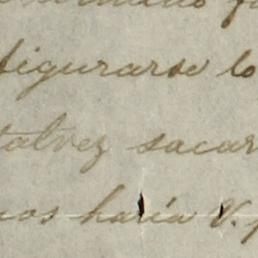 figurarse lo
talvez sacar
nos haría V.